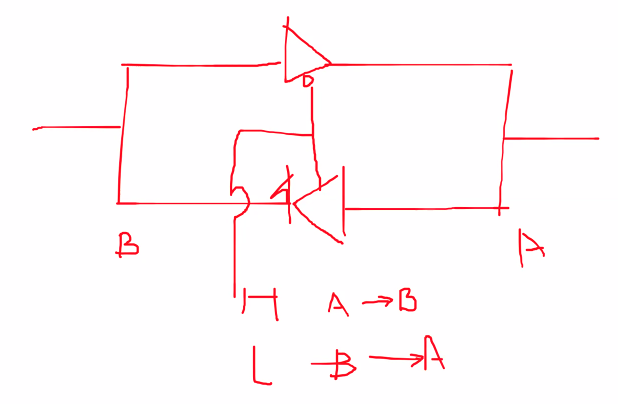 B
A
H A → B
L B → A